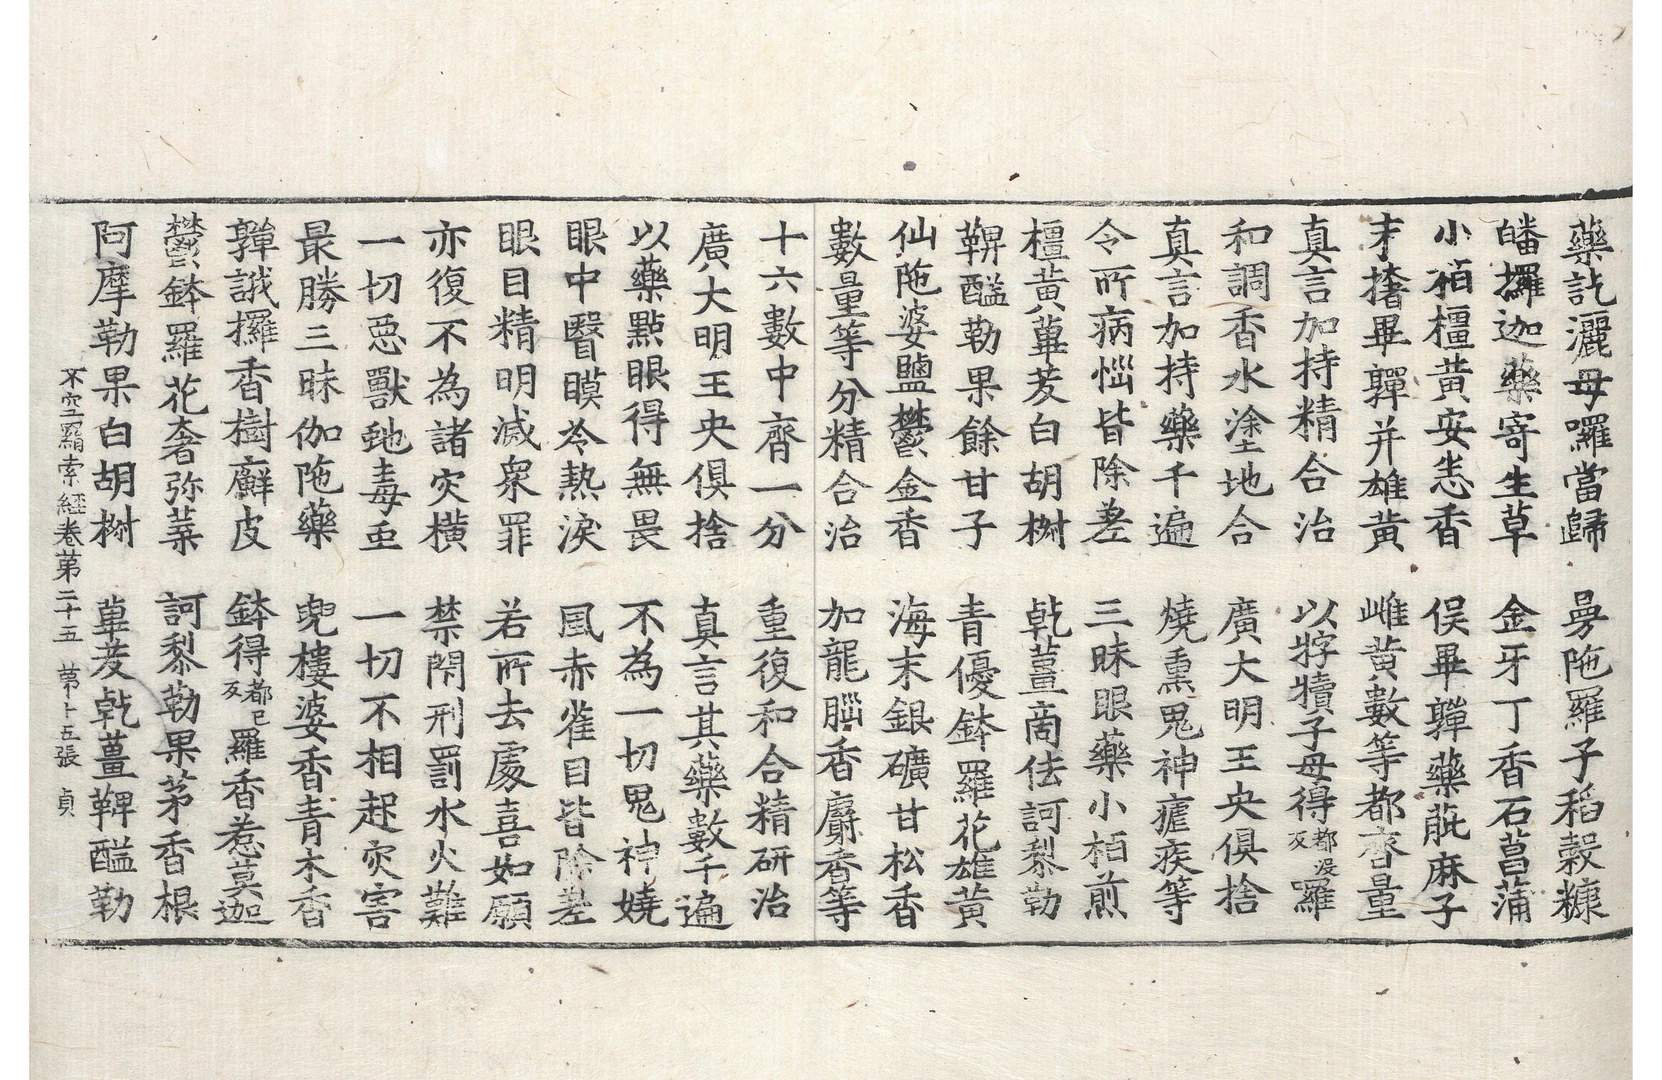 藥訖灑母囉當歸　曼陁羅子稻穀糠
皤攞迦藥寄生草　金牙丁香石菖蒲
小栢橿黃安悉香　俱畢鞸藥蓖麻子
末撦畢鞸并雄黃　雌黃數等都齊量
真言加持精合治　以牸犢子母得都沒反羅
和調香水塗地合　廣大明王央俱捨
真言加持藥千遍　燒熏鬼神瘧疾等
令所病惱皆除差　三昧眼藥小栢煎
橿黃蓽茇白胡椒　乾薑啇佉訶梨勒
鞞醯勒果餘甘子　青優鉢羅花雄黃
仙陁婆鹽欝金香　海末銀礦甘松香
數量等分精合治　加龍腦香麝香等
十六數中齊一分　重復和合精研治
廣大明王央俱捨　真言其藥數千遍
以藥點眼得無畏　不為一切鬼神嬈
眼中瞖瞙冷熱淚　風赤雀目皆除差
眼目精明滅衆罪　若所去處喜如願
亦復不為諸灾橫　禁閇刑罰水火難
一切惡獸虵毒䖝　一切不相起灾害
最勝三昧伽陁藥　兜樓婆香青木香
鞸誐攞香樹廯皮　鉢得都已反羅香惹莫迦
欝鉢羅花奢弥葉　訶黎勒果茅香根
阿摩勒果白胡椒　蓽茇乾薑鞞醯勒
不空羂索經卷第二十五　第十五張　貞